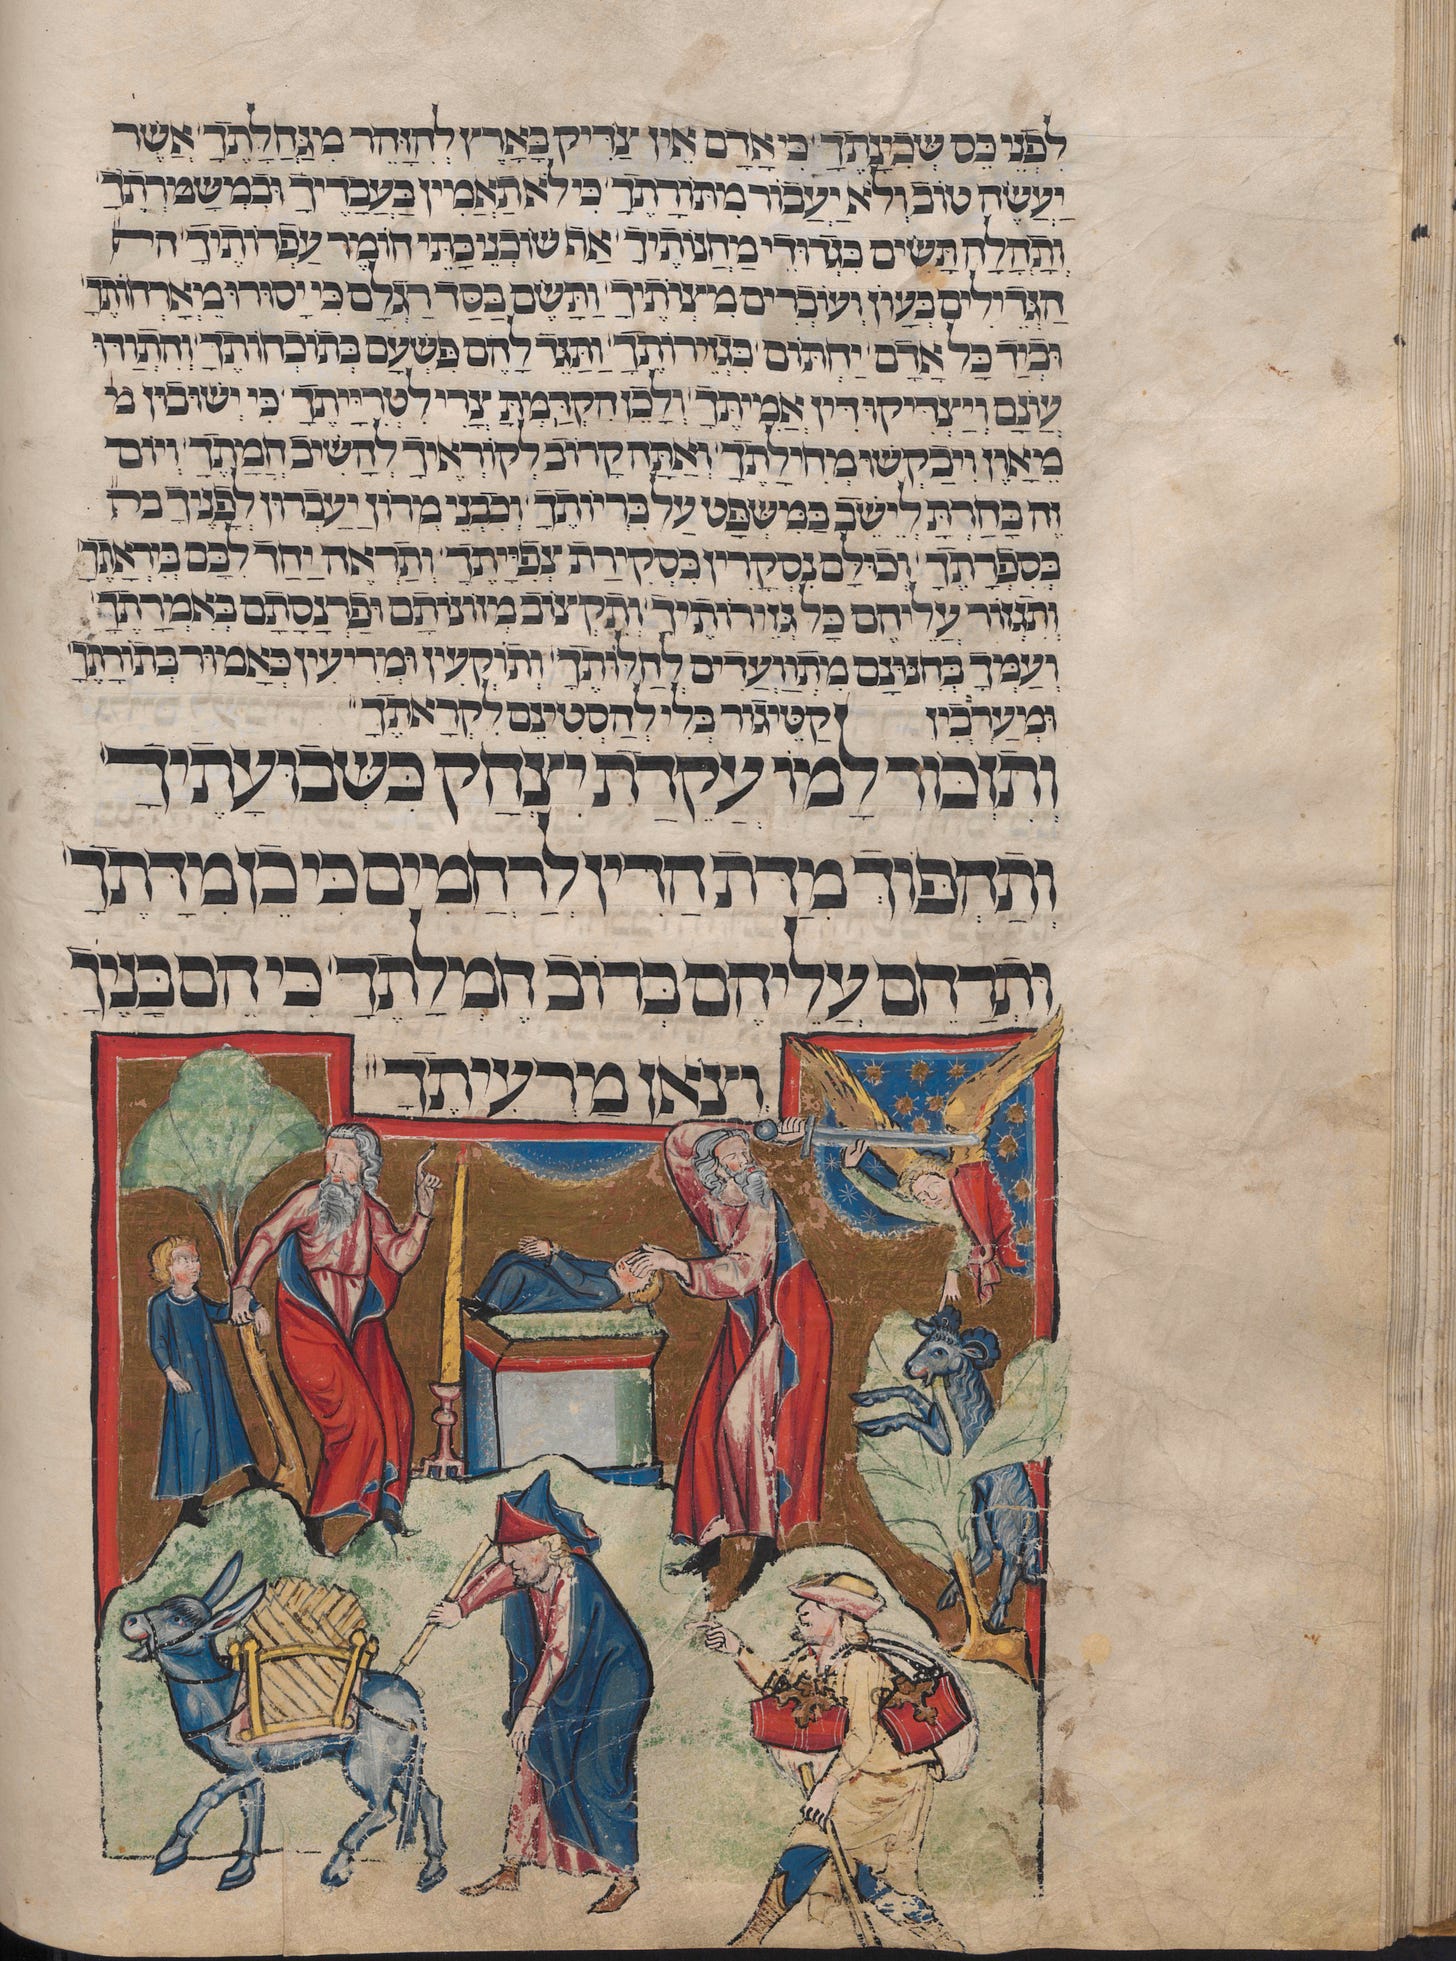 לפני כס שכינתך כי אדם אין צדיק בארץ להזהר מגחלתך אשר
יעשה טוב ולא יעבור מתורתך כי לא תאמין בעבדיך ובמשמרתך
ותהלה תשים בגדודי מחנותיך אף שוכני בתי חומר עפרותיך הה
הגדילים בעון ועוברים מצותיך ותשם בסד רגלם כי יסורו מארחותך
וביד כל אדם יחתום בגזירותך ותגד להם פשעם בתוכחותך והתוודו
עונם ויצדיקו דין אמיתך ולכן הקדמת צרי לטרייתך כי ישובון מ
מאון ויבקשו מחילתך ואתה קרוב לקוראיך להשיב חמתך ויום
זה בחרת לישב במשפט על בריותך וכבני מרון יעברון לפניך בה
בספרתך וכולם נסקרין בסקירת צפייתך ותראה יחד לבם ביראתך
ותגזור עליהם כל גזירותיך ותקצוב מזונותם ופרנסתם באמרתך
ועמך בחנונם מתוועדים לחלותך ותוקעין ומריעין כאמור בתורתך
ומערבין קטיגור בלי להסטינם לקראתך
ותזכור למו עקדת יצחק כשבועתיך
ותהפוך מדת הדין לרחמים כי כן מדתך
ותרחם עליהם ברוב חמלתך כי הם בניך
וצאן מרעיתך